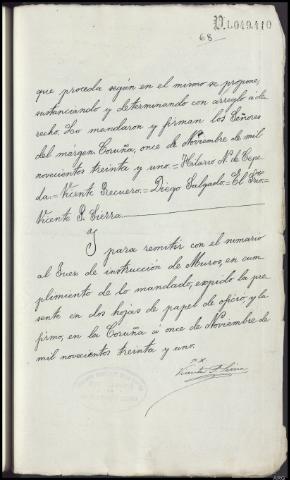 D.1.049.110
68
que proceda según en el mismo se propone,
sustanciándo y determinando con arreglo a de
recho. Lo mandaron y firman los Señores
del margen. Coruña, once de Noviembre de mil
novecientos treinta y uno.= Hilario N. de Cepe
da.= Vicente Recuero.= Diego Salgado.= El Srio=
Vicente P. Sierra.
Y para remitir con el sumario
al Juez de instrucción de Muros, en cum
plimiento de lo mandado, expido la pre
sente en dos hojas de papel de oficio, y la
firmo, en la Coruña á once de Noviembre de
mil novecientos treinta y uno.
Vicente P. Sierra